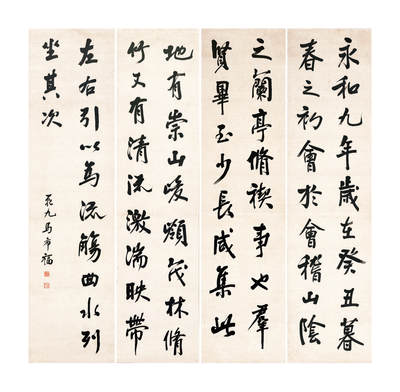 永和九年歲在癸丑暮
春之初會於會稽山陰
之蘭亭脩禊事也羣
賢畢至少長咸集此
地有崇山峻領茂林脩
竹又有清流激湍映帶
左右引以為流觴曲水列
坐其次